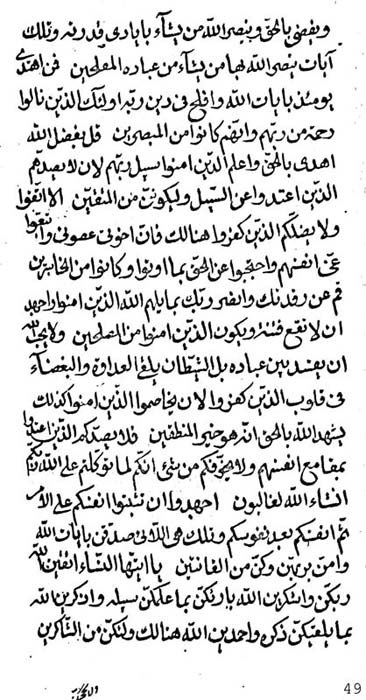 ويقضي بالحق وينصر الله من يشآء بايادي قدرته وتلك
آيات ينصر الله بها من يشآء من عباده المفلحين فمن اهتدى
يومئذ بايات الله وافلح في دين ربه اولئك الذين نالوا
رحمة من ربهم وانهم كانوا من المبصرين قل بفضل الله
اهدى بالحق واعلم الذين امنوا سبيل ربهم لان لا يصدهم
الذين اعتدوا عن السبيل وليكونن من المتقين الا اتقوا
ولا يضلكم الذين كفروا هنالك فان اخوتي عصوني واتبعوا
غي انفسهم واحتجبوا عن الحق بما اوتوا وكانوا من الخاسرين
قم عن رقدتك وانصر ربك بما يلهم الله الذين امنوا واجهد
ان لا تقع فتنة ويكون الذين امنوا من المصلحين ولا يحب الله
ان يفسد بين عباده بل الشيطان يلقي العداوة والبغضآء
في قلوب الذين كفروا لان يخاصموا الذين امنوا كذلك
يشهد الله بالحق انه هو خير المنطقين فلا يصدكم الذين اعتدوا
بمقامع انفسهم ولا يخوفكم من شئ انكم لما توكلتم على الله ربكم
انشاء الله لغالبون اجهدوا ان تثبتوا انفسكم على الأمر
ثم انفسكم بعد نفوسكم وتلك هي اللاتي صدقن بايات الله
وامن بربهن وكن من القانتين يا ايتها النساء اتقين الله
ربكن واشكرن الله بارئكن بما علمكن سبيله واذكرن الله
بما يلقيكن ذكره واحمدن الله هنالك ولتكن من الشاكرين
49